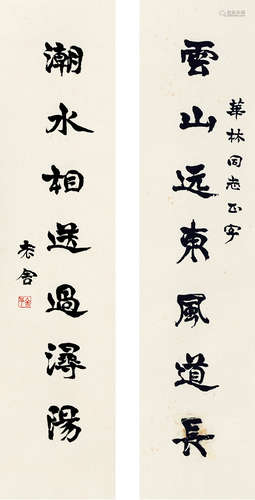 華林同志正字
雲山远東風道長
潮水相送過潯陽
老舍